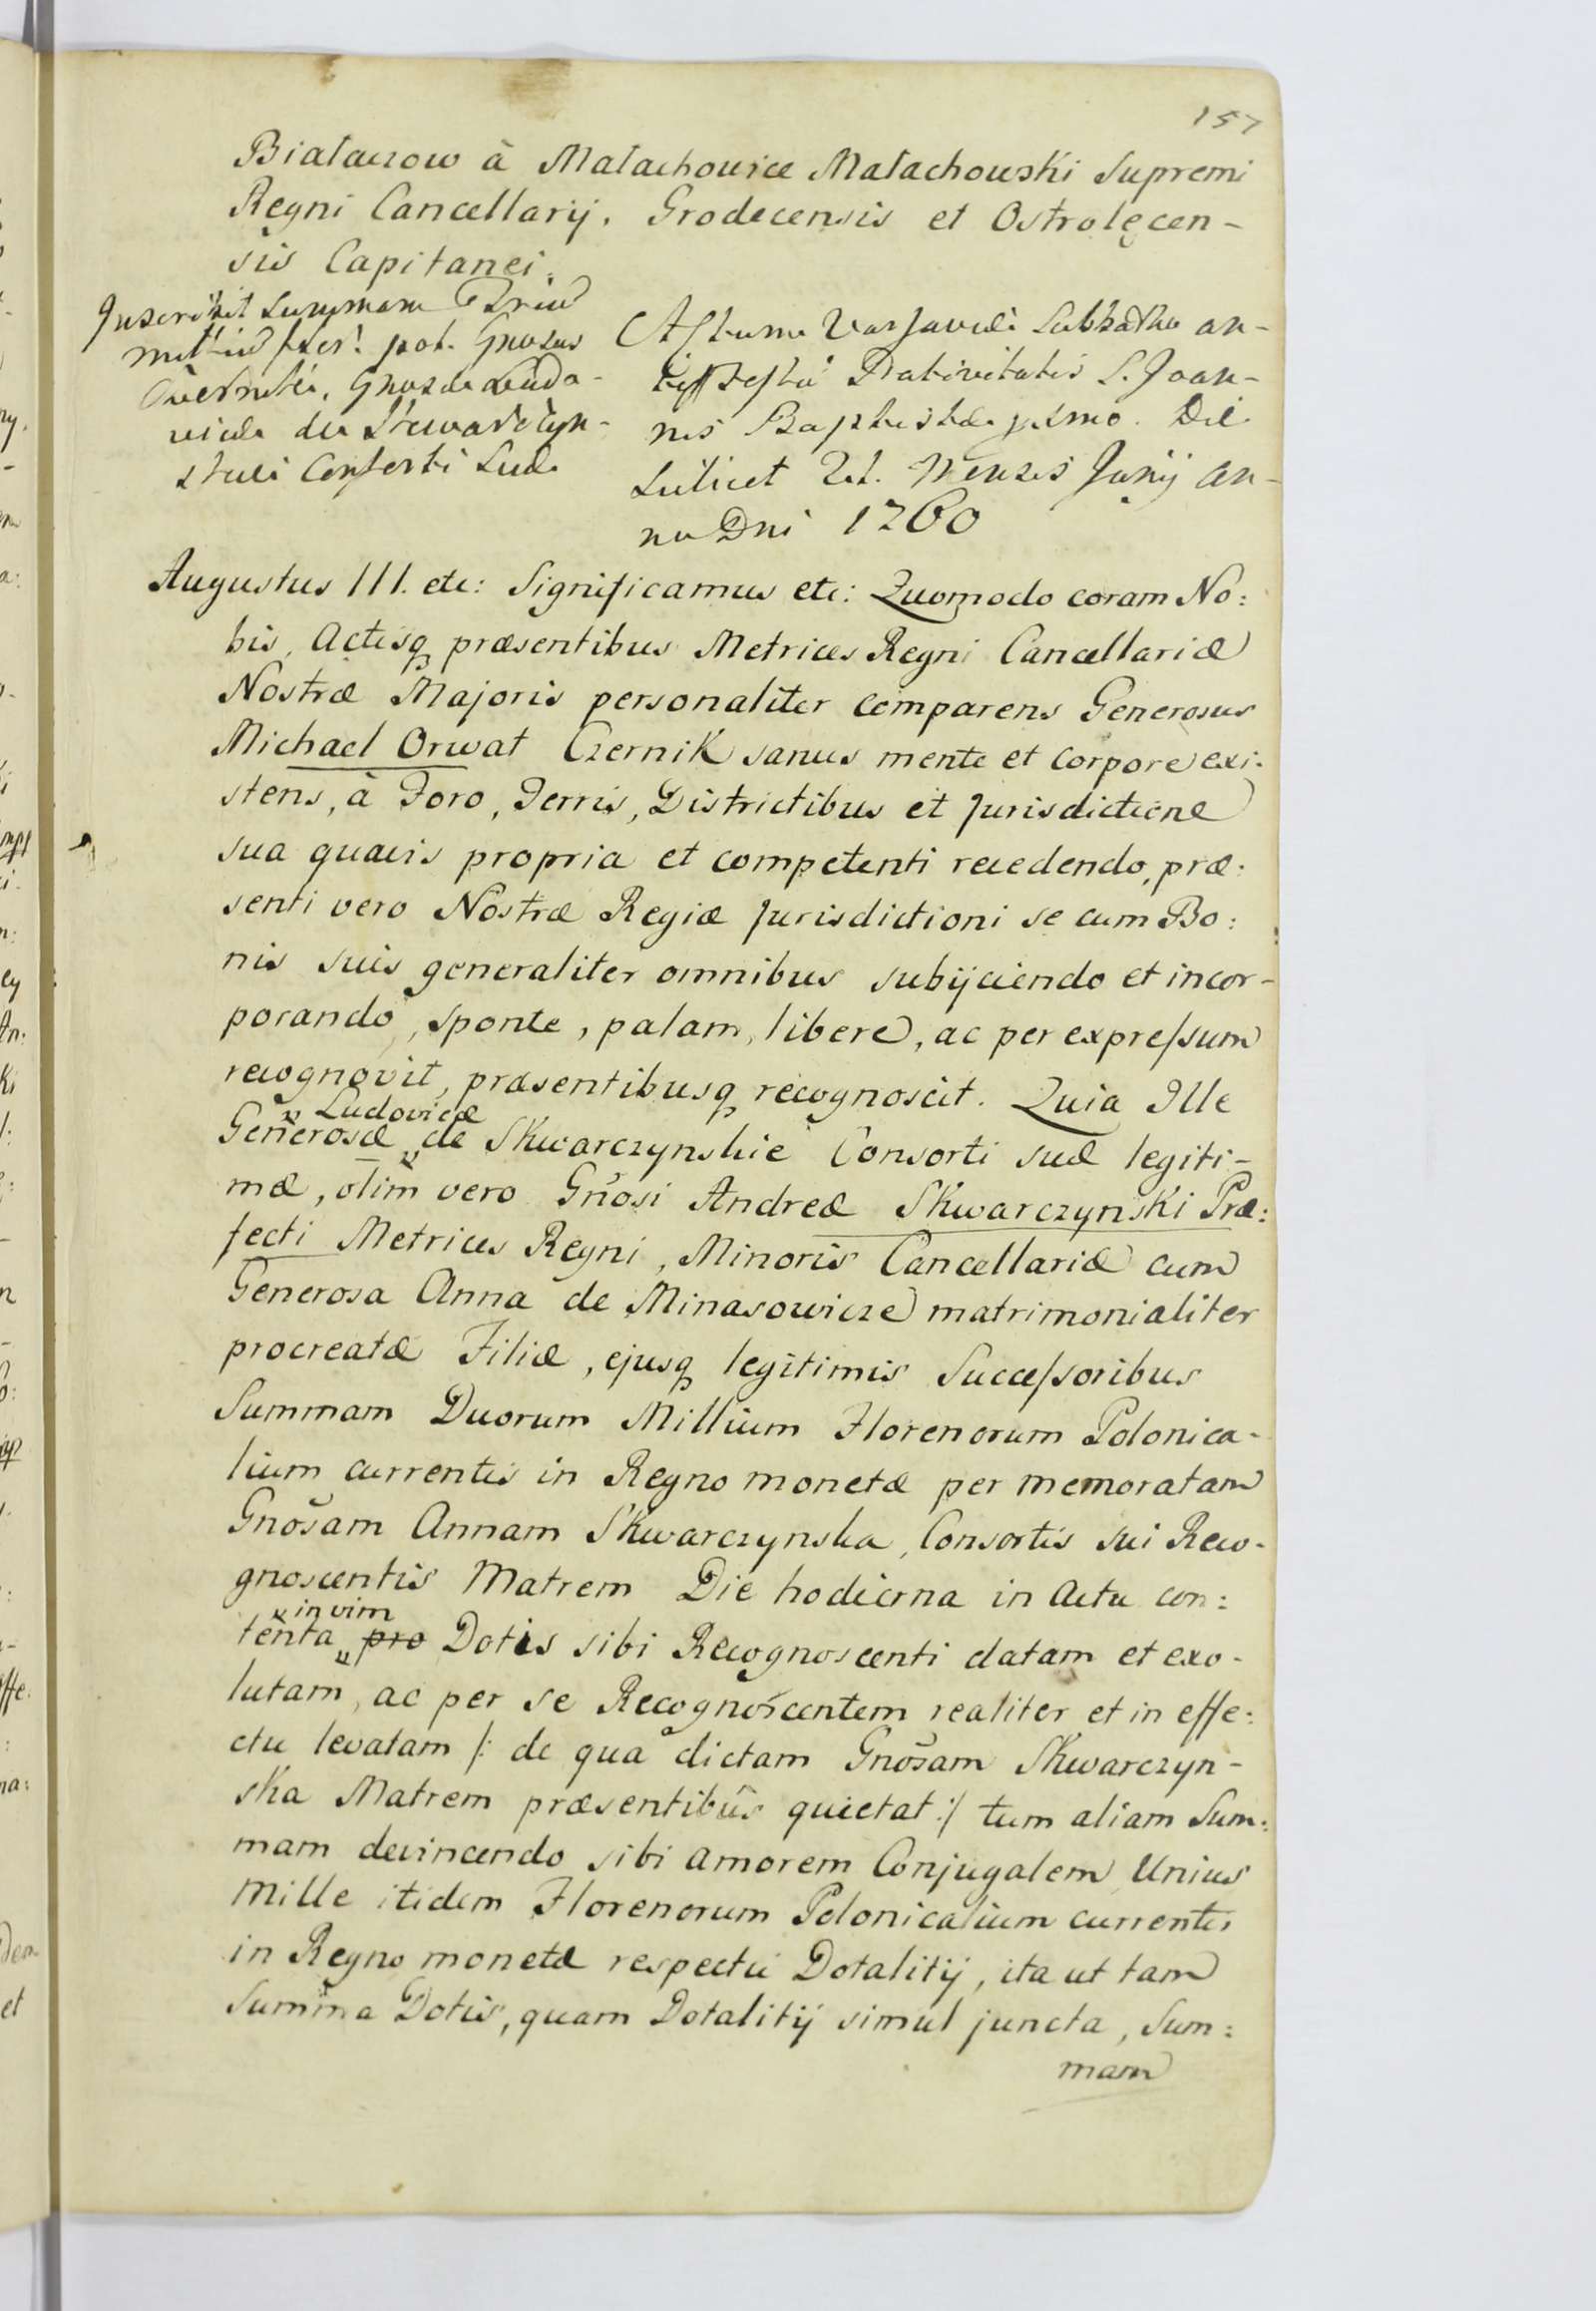 157
Białaczow à Małachowice Małachowski Supremi
Regni Cancellarij, Grodecensis et Ostrolęcen-
sis Capitanei.
Inscribit Summam Trium
mill: flor: pol. Gnosus
Gnosae Ludo-
vicae de Skwarczyn-
skie Consorti Suae
Actum Varsaviae Sabbatho an-
te Festum Nativitatis S. Joan-
nis Baptistae pxmo. Die
scilicet 21. Mensis Junij An-
no Dni 1760
Augustus III. etc: Significamus etc: Quomodo coram No:
bis, Actisq præsentibus Metrices Regni Cancellariæ
Nostræ Majoris personaliter comparens Generosus
Michael Orwat Czernik sanus mente et corpore exi:
stens, à Foro, Terris, Districtibus et Jurisdictione
sua quavis propria et competenti recedendo, præ:
senti vero Nostræ Regiæ Jurisdictioni se cum Bo:
nis suis generaliter omnibus subijciendo et incor-
porando, sponte, palam, libere, ac per expressum
recognovit, præsentibusq recognoscit. Quia Ille
Ludovicæ
Generosæ de Skwarczynskie Consorti suæ legiti-
mæ, olim vero Gnosi Andreæ Skwarczynski Præ:
fecti Metrices Regni, Minoris Cancellariæ cum
Generosa Anna de Minasowicze matrimonialiter
procreatæ Filiæ, ejusq legitimis Successoribus
Summam Duorum Millium Florenorum Polonica-
lium currentis in Regno monetæ per memoratam
Gnosam Annam Skwarczynska, Consortis sui Reco-
gnoscentis Matrem Die hodierna in Actu con:
in vim
tenta pro Dotis sibi Recognoscenti datam et exo-
lutam, ac per se Recognoscentem realiter et in effe:
ctu levatam /: de qua dictam Gnosam Skwarczyn-
ska Matrem præsentibus quietat :/ tum aliam Sum:
mam devincendo sibi amorem Conjugalem Unius
Mille itidem Florenorum Polonicalium currentis
in Regno monetæ respectu Dotalitij, ita ut tam
Summa Dotis, quam Dotalitij simul juncta, Sum:
mam